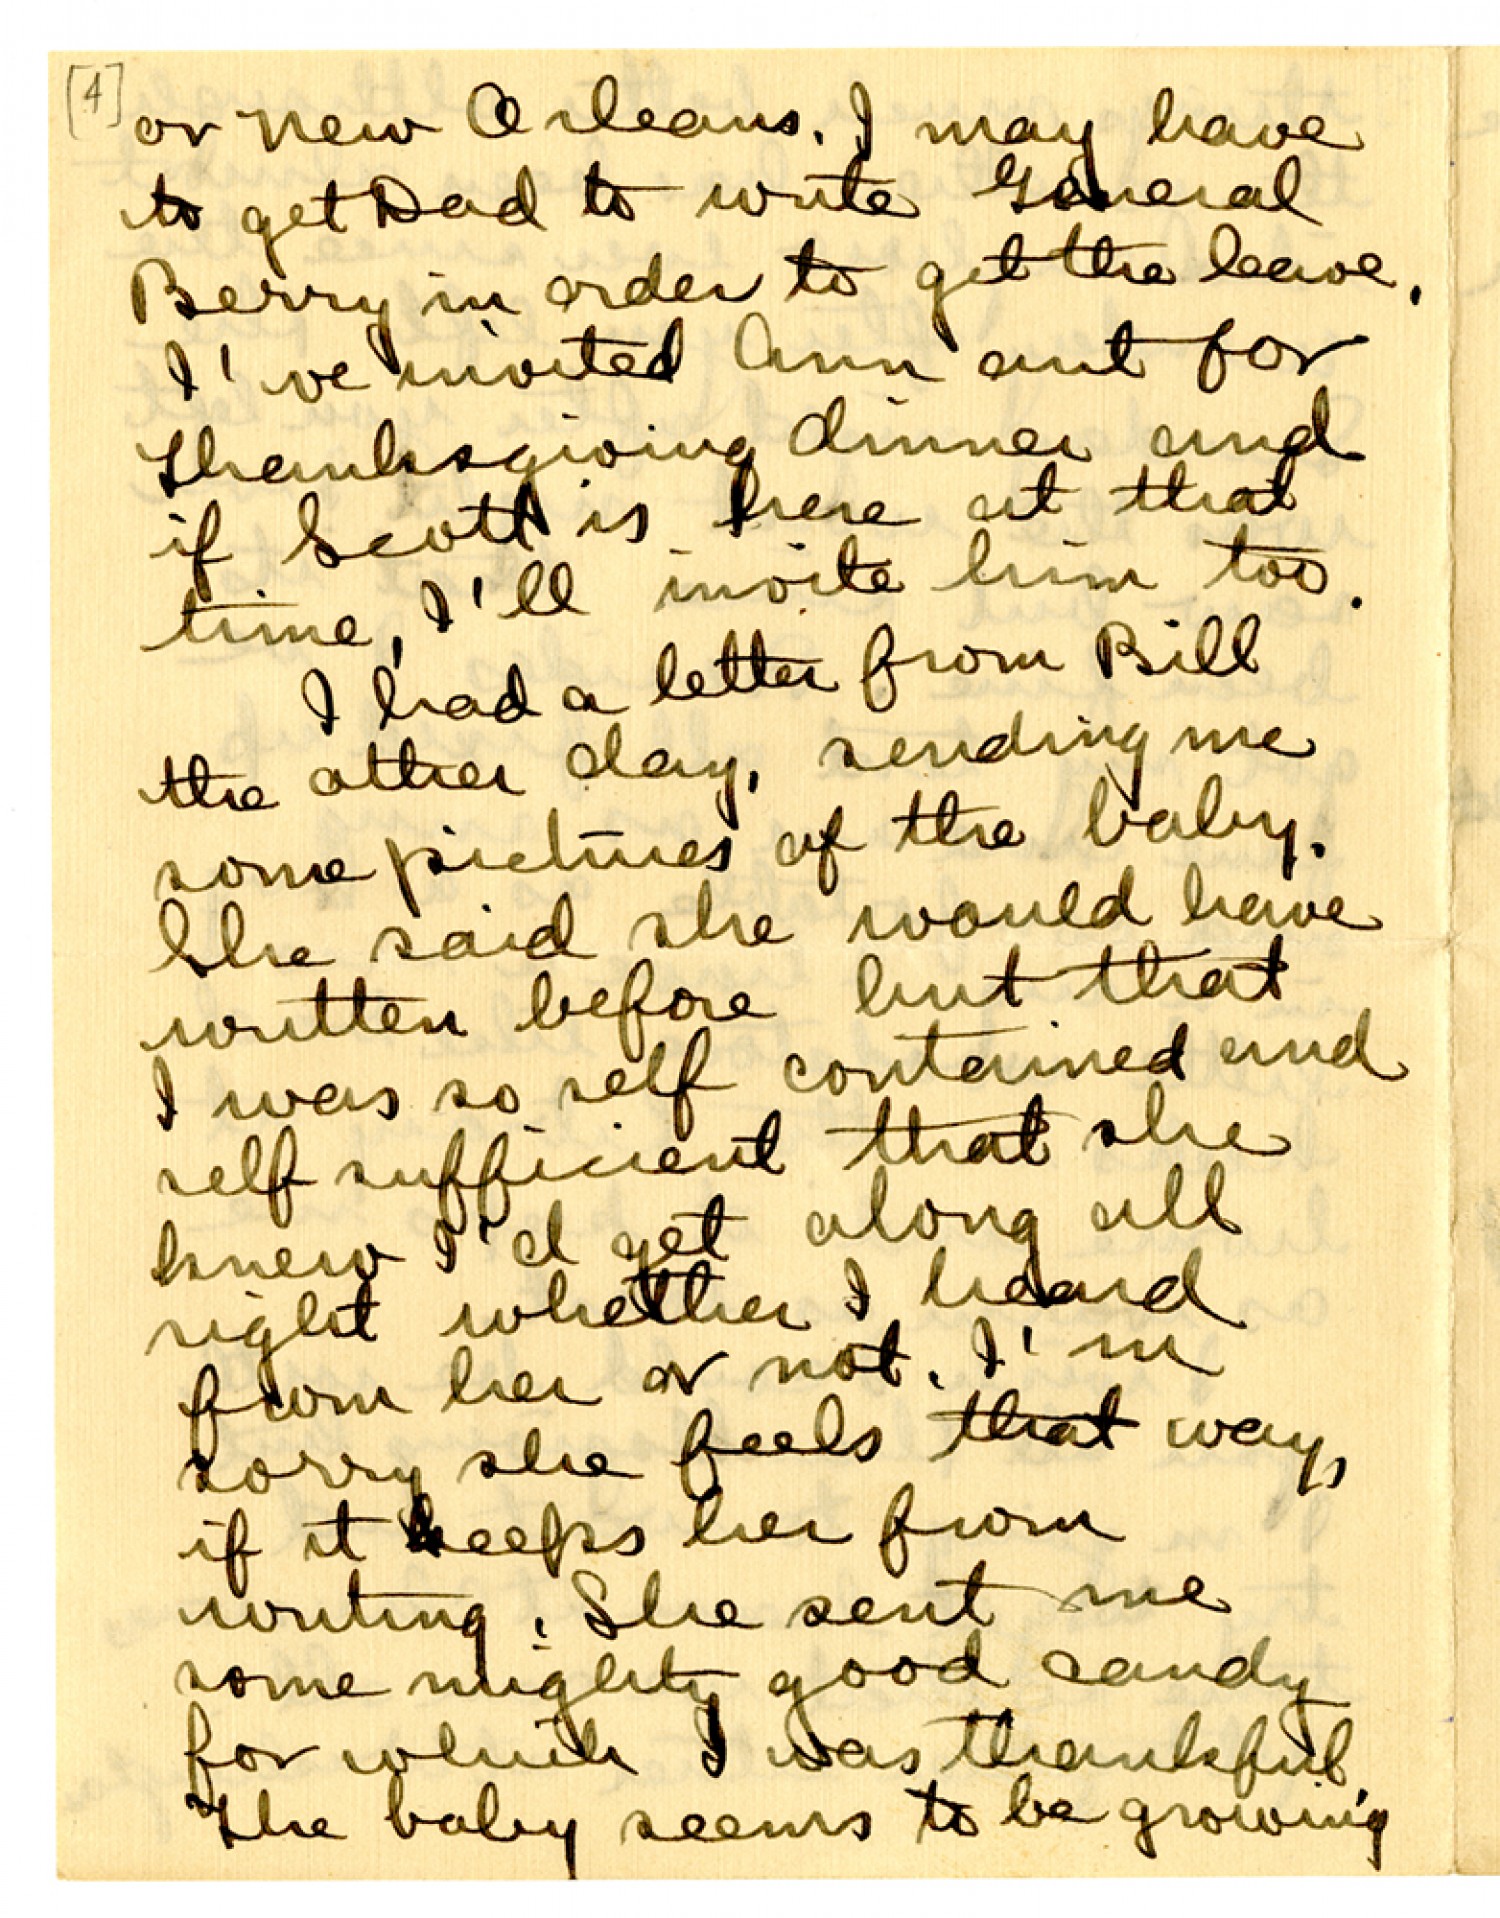 [4]
or New Orleans. I may have
to get Dad to write General
Berry in order to get the leave.
I've invited Ann out for
Thanksgiving dinner and
if Scott is here at that
time, I'll invite him too.
I had a letter from Bill
the other day, sending me
some pictures of the baby.
She said she would have
written before but that
I was so self contained and
self sufficient that she
knew I'd get along all
right whether I heard
from her or not. I'm
sorry she feels that way,
if it keeps her from
writing. She sent me
some mighty good candy
for which I was thankful.
The baby seems to be growing